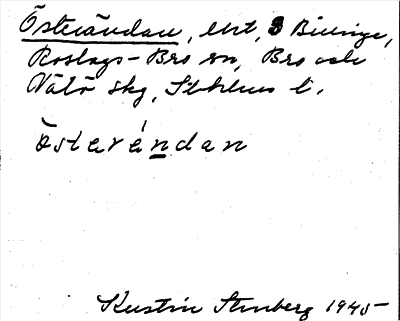 Österändan, lht, 3 Billinge,
Roslags-Bro sn, Bro och
Vätö skg, Sthlms l.
Österéndan
Kerstin Stenberg 1945